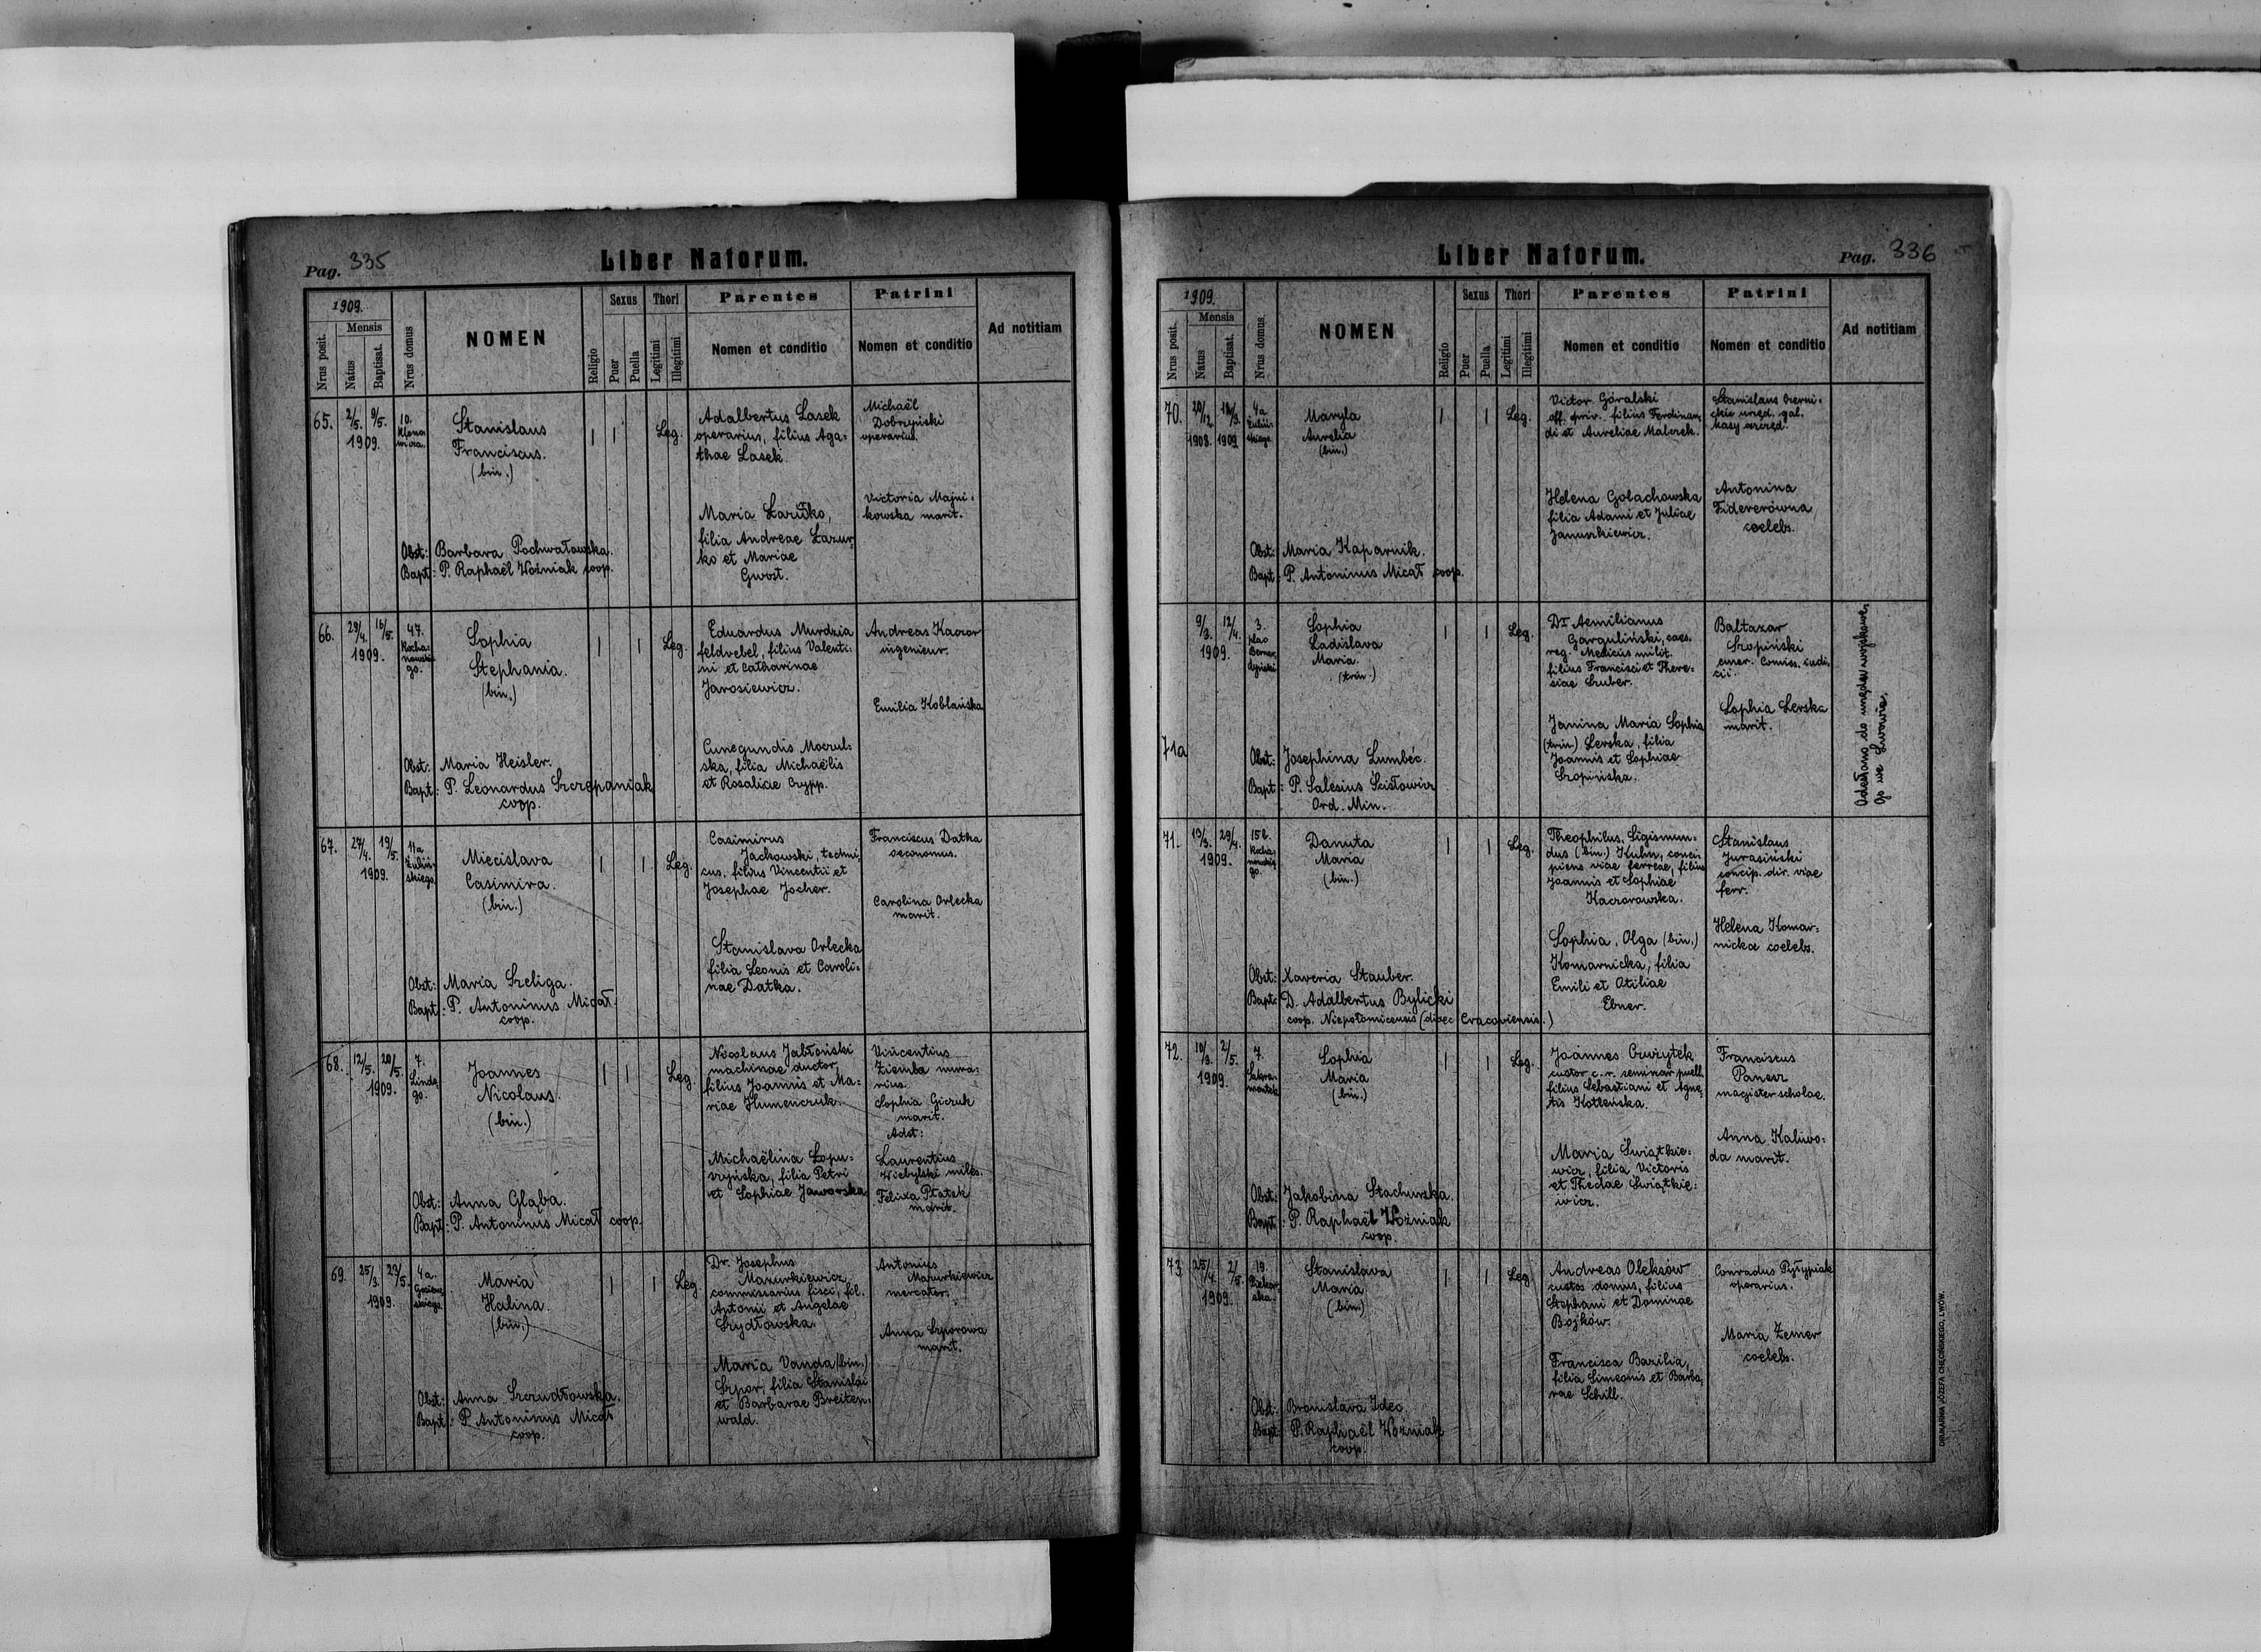 Pag. 335
Liber Natorum.
1909.
Mensis
Nrus posit.
Natus
Baptisat.
Nrus domus
NOMEN
Religio
Sexus
Puer
Puella
Thori
Legitimi
Illegitimi
Parentes
Nomen et conditio
Patrini
Nomen et conditio
Ad notitiam
65.
2/5. 9/5.
1909.
10.
Klono
wicza.
Stanislaus
Franciscus.
(bin.)
Obst: Barbara Pochwatowska.
Bapt: P. Raphaël Woźniak coop.
1 1
Leg.
Adalbertus Lasek
operarius, filius Aga-
thae Lasek.
Maria Łazurko,
filia Andreae Lazur-
ko et Mariae
Gwost.
Michaël
Dobrzyński
operarius.
Victoria Majni-
kowska marit.
66.
29/4. 16/5.
1909.
47.
Kocha-
nowskie
go.
Sophia
Stephania.
(bin.)
Obst: Maria Heisler.
Bapt: P. Leonardus Szczepaniak
coop.
1 1
Leg.
Eduardus Murdzia
feldvebel, filius Valenti-
ni et Catharinae
Jarosiewicz.
Cunegundis Moczul-
ska, filia Michaëlis
et Rosaliae Czypp.
Andreas Kaczor
ingenieur.
Emilia Koblańska
67.
27/4. 19/5.
1909.
11a
Żuliń-
skiego
Miecislava
Casimira.
(bin.)
Obst: Maria Szeliga.
Bapt: P. Antoninus Micał.
coop.
1 1
Leg.
Casimirus
Jackowski, techni-
cus, filius Vincentii et
Josephae Jocher.
Stanislava Orlecka
filia Leonis et Caroli-
nae Datka.
Franciscus Datka
oeconomus.
Carolina Orlecka
marit.
68.
12/5. 20/5.
1909.
7.
Linde
go.
Joannes
Nicolaus.
(bin.)
Obst: Anna Gląba.
Bapt: P. Antoninus Micał coop.
1 1
Leg.
Nicolaus Jabłoński
machinae ductor,
filius Joannis et Ma-
riae Humenczuk.
Michaëlina Łopu-
szyńska, filia Petri
et Sophiae Jaworska
Vincentius
Ziemba mura-
rius.
Sophia Giczuk
marit.
Adst:
Laurentius
Wiebylski miles.
Felixa Ptatek
marit.
69.
25/3. 23/5.
1909.
4a.
Maria
Halina.
(bin.)
Obst: Anna Szczudłowska.
Bapt: P. Antoninus Micał
coop.
1 1
Leg.
Dr. Josephus
Mazurkiewicz
commissarius fisci, fil.
Antonii et Angelae
Szydłowska.
Maria Vanda (bin.)
Szpor, filia Stanislai
et Barbarae Breiten-
wald.
Antonius
Mazurkiewicz
mercator.
Anna Szporowa
marit.
Liber Natorum.
Pag. 336
1909.
Mensis
Nrus posit.
Natus
Baptisat.
Nrus domus
NOMEN
Religio
Sexus
Puer
Puella
Thori
Legitimi
Illegitimi
Parentes
Nomen et conditio
Patrini
Nomen et conditio
Ad notitiam
70.
20/12. 12/3.
1908. 1909
4a
Żuliń-
skiego
Maryla
Aurelia
(bin.)
Obst: Maria Kaparnik.
Bapt: P. Antoninus Micał coop.
1 1
Leg.
Victor Góralski
off. priv. filius Ferdinan-
di et Aureliae Malczek.
Helena Gołachowska
filia Adami et Juliae
Januszkiewicz.
Stanislaus
urzęd. gal.
kasy
Antonina
Fidererówna
coelebs.
71a
9/3. 12/4.
1909.
3.
plac
Bernar-
dyński
Sophia
Ladislava
Maria.
(trin.)
Obst: Josephina Lumbéc.
Bapt: P. Salesius Scisłowicz
Ord. Min.
1 1
Leg.
Dr Aemilianus
Garguliński, caes.
reg. Medicus milit.
filius Francisci et There-
siae Szuber.
Janina Maria Sophia
(trin.) Lerska, filia
Joannis et Sophiae
Szopińska.
Baltazar
Szopiński
emer. Comiss. iudi-
cii.
Sophia Lerska
marit.
Odesłano do urzędu wojskowe-
go we Lwowie.
71.
13/3. 29/4.
1909.
15b.
Kocha-
nowskie
go.
Danuta
Maria
(bin.)
Obst: Xaveria Stauber.
Bapt: D. Adalbertus Bylicki
coop. Niepołomicensis (dioec. Cracoviensis.)
1 1
Leg.
Theophilus, Sigismun-
dus (bin.) Kuhn, conci-
piens viae ferreae, filius
Joannis et Sophiae
Kaczorowska.
Sophia, Olga (bin.)
Komarnicka, filia
Emili et Otiliae
Ebner.
Stanislaus
Jurasiński
concip. dir. viae
ferr.
Helena Komar-
nicka coelebs.
72.
10/3. 2/5.
1909.
7.
Sakra-
mentek
Sophia
Maria
(bin.)
Obst: Jakobina Stachurska.
Bapt: P. Raphaël Woźniak
coop.
1 1
Leg.
Joannes Cwżytek
custor c.r. seminar puell.
filius Sebastiani et Agne-
tis Kotleńska.
Maria Świątkie-
wicz, filia Victoris
et Theclae Swiątkie-
wicz.
Franciscus
Panesz
magister scholae.
Anna Kaliwo-
da marit.
73.
25/4. 2/5.
1909.
19.
Piekar-
ska.
Stanislava
Maria
(bin.)
Obst: Bronislava Idec.
Bapt: P. Raphaël Woźniak
coop.
1 1
Leg.
Andreas Oleksów
custos domus, filius
Stephani et Dominae
Bojków.
Francisca Bazilia,
filia Simeonis et Barba-
rae Schill.
Conradus Pyłypiak
operarius.
Maria Zemer
coelebs.
DRUKARNIA JÓZEFA CHĘCIŃSKIEGO, LWÓW.